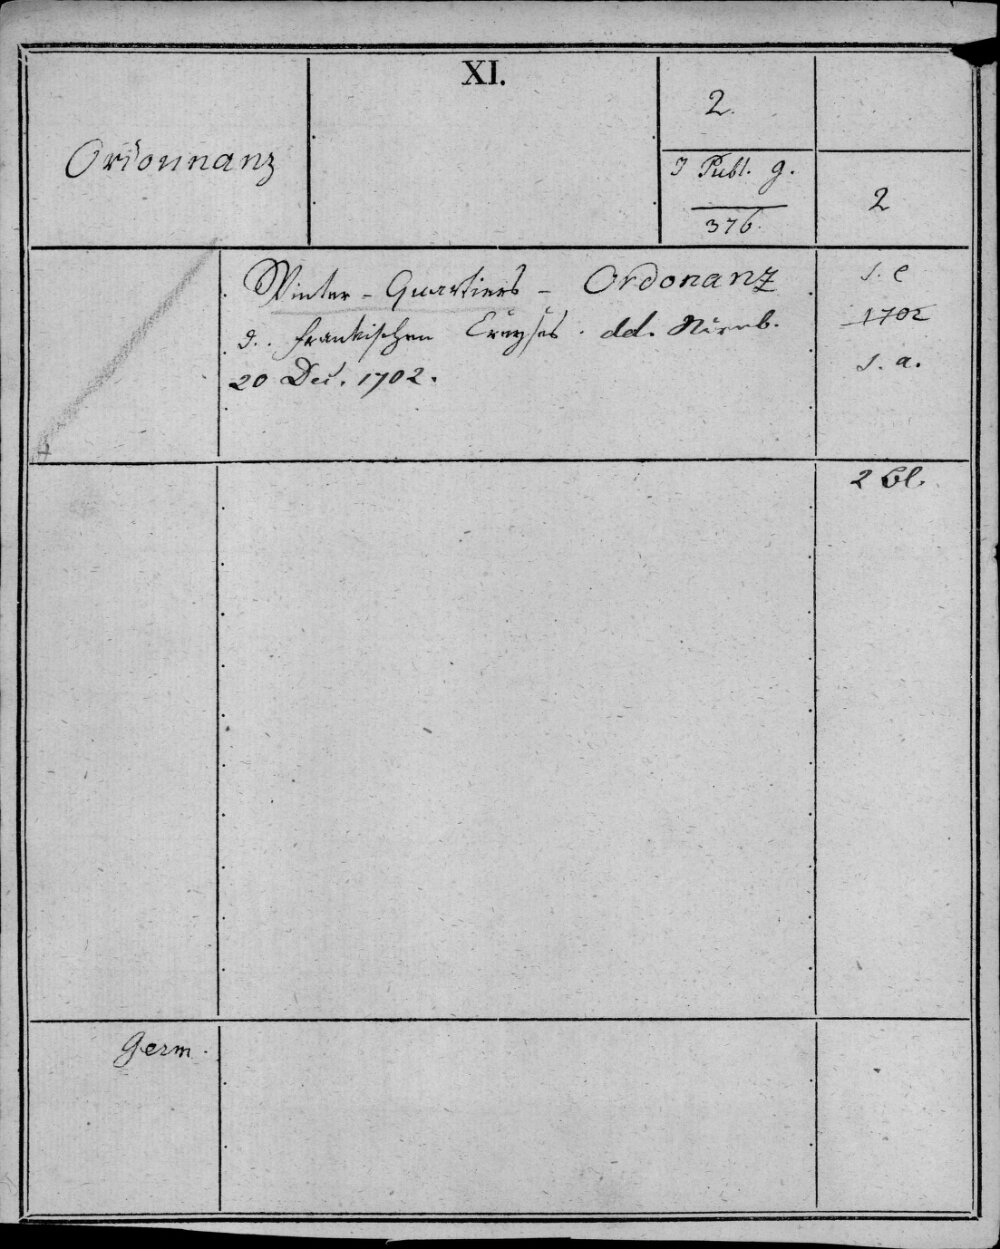 XI.
Ordonnanz
2.
J Publ. g.
376.
2
Winter-Quartiers-Ordonanz
d. fränkischen Creyses. dd. Nürnb.
20 Dec. 1702.
s. l
1702
s. a.
2 Bl.
Germ.